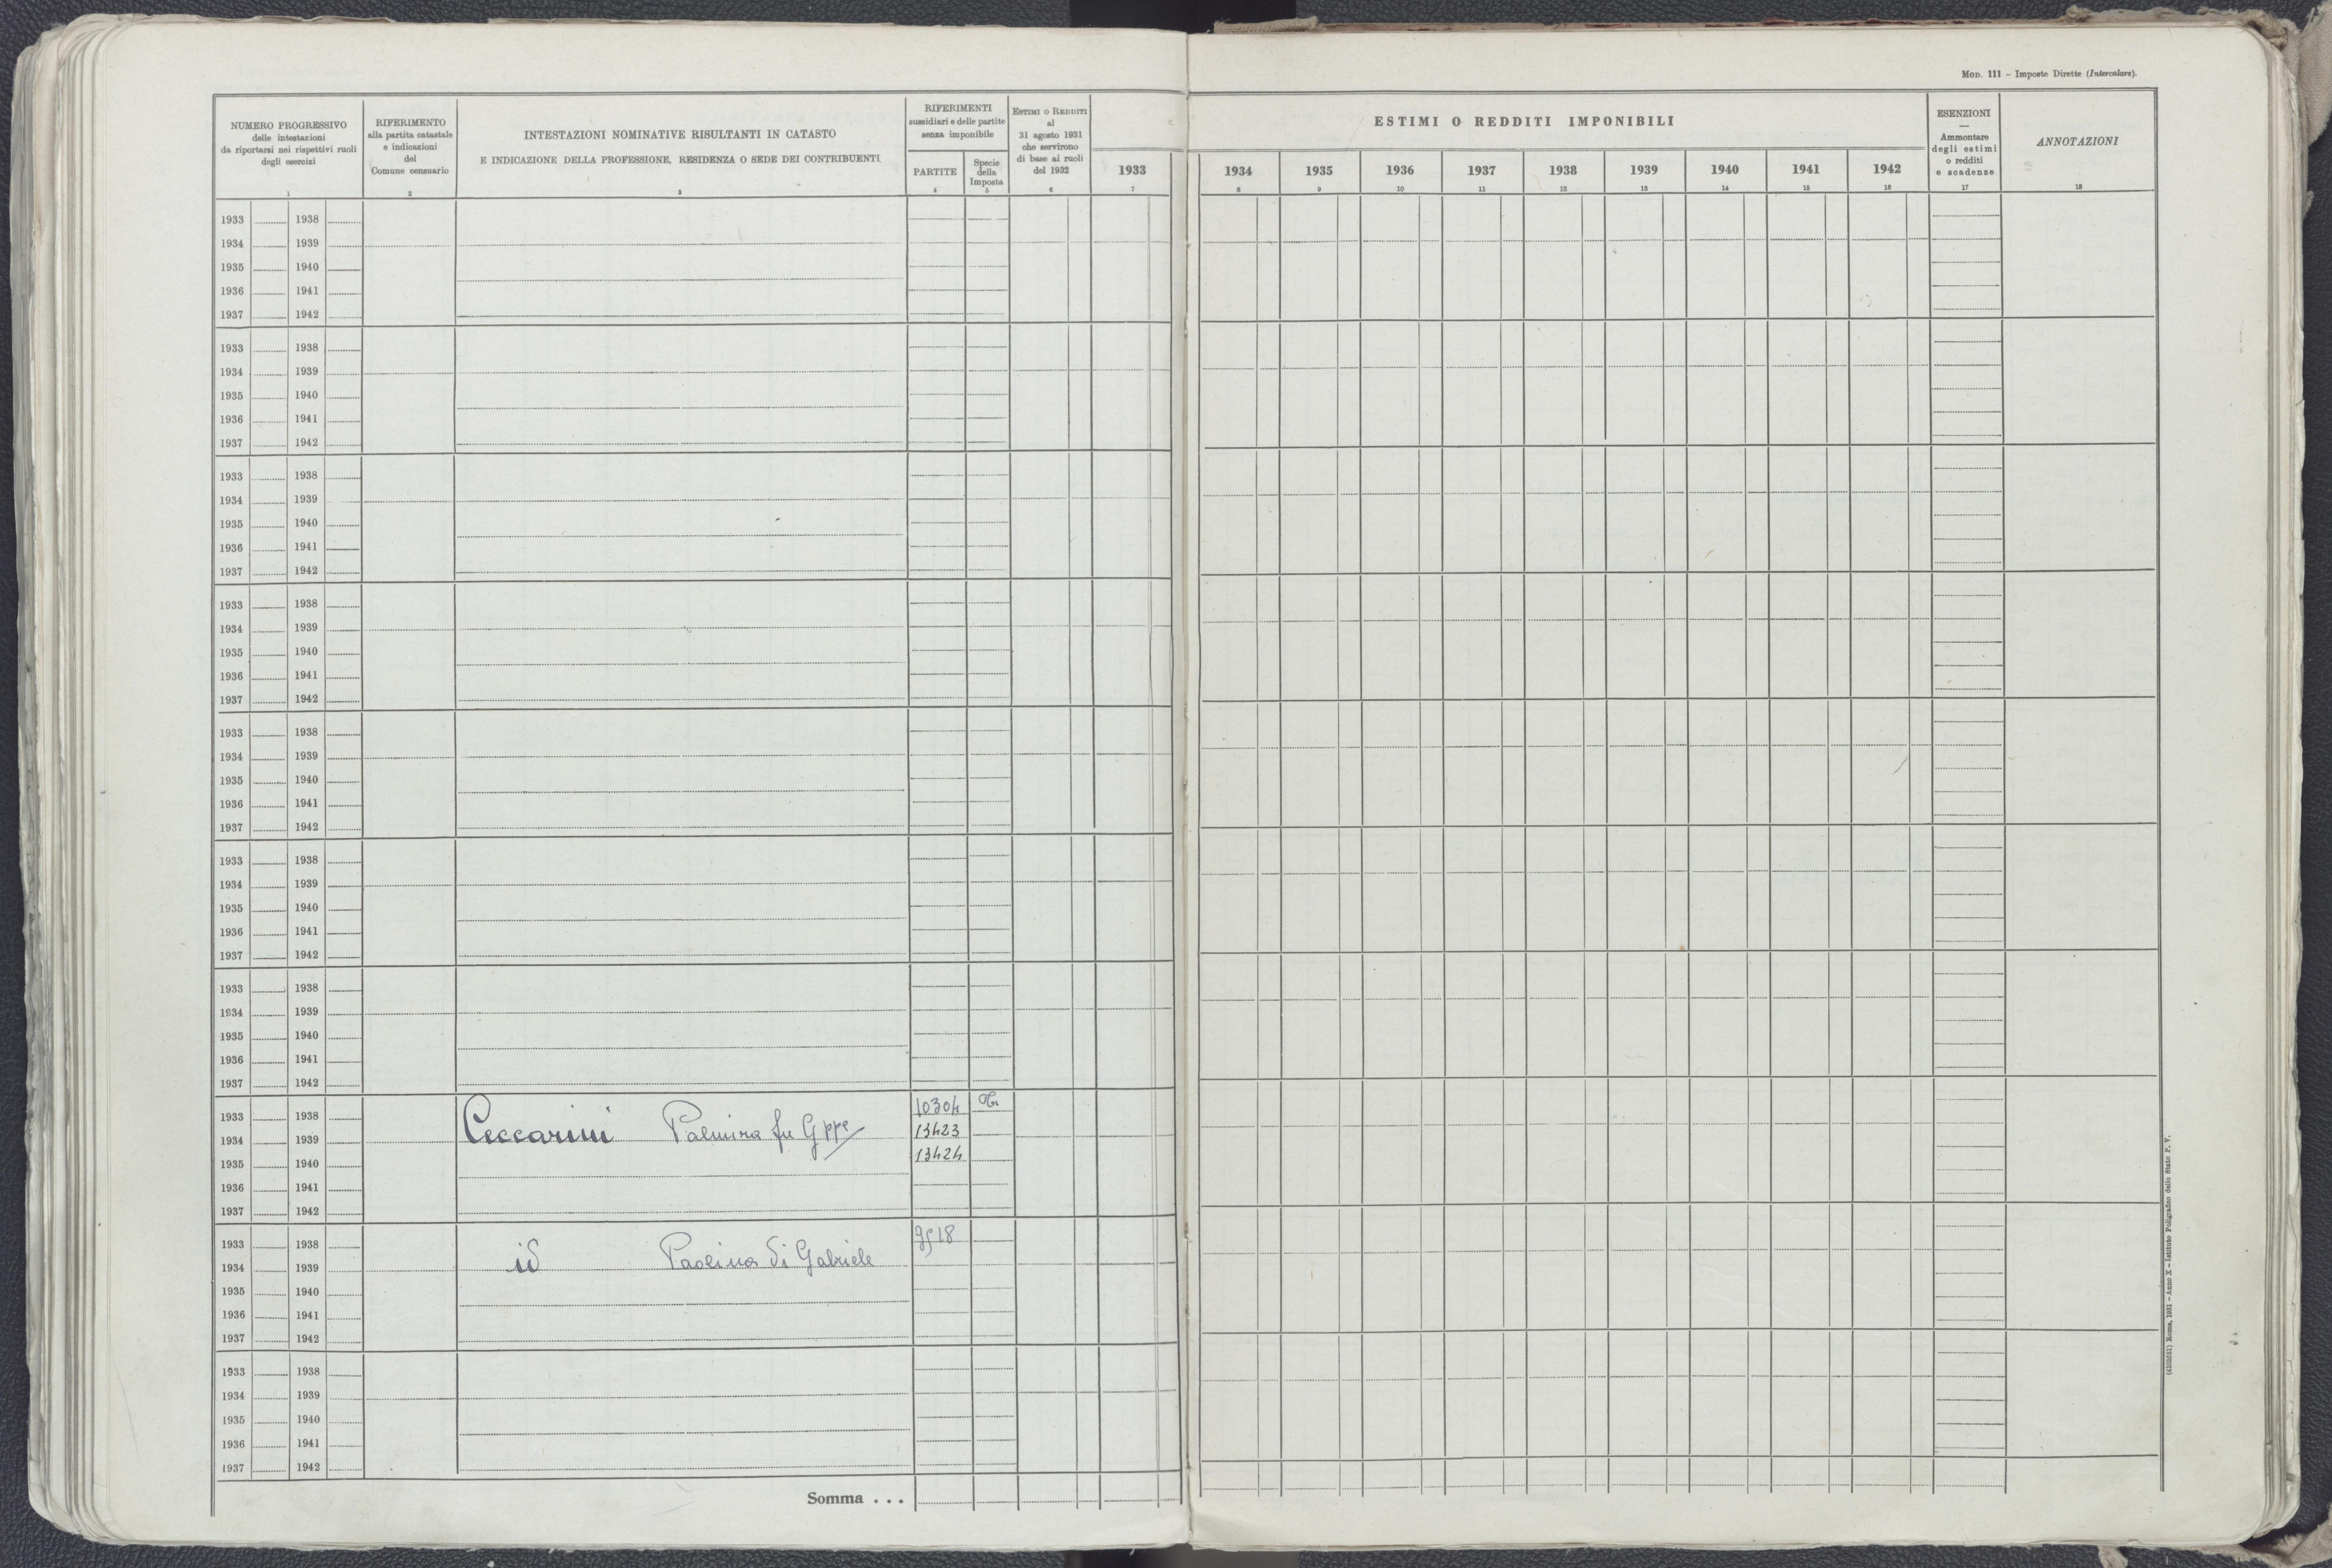 Mod. 111 – Imposte Dirette (Intercalare).
NUMERO PROGRESSIVO
delle intestazioni
da riportarsi nei rispettivi ruoli
degli esercizi
1
RIFERIMENTO
alla partita catastale
e indicazioni
del
Comune censuario
2
INTESTAZIONI NOMINATIVE RISULTANTI IN CATASTO
E INDICAZIONE DELLA PROFESSIONE, RESIDENZA O SEDE DEI CONTRIBUENTI
3
RIFERIMENTI
sussidiari e delle partite
senza imponibile
PARTITE
4
Specie
della
Imposta
5
Estimi o Redditi
al
31 agosto 1931
che servirono
di base ai ruoli
del 1932
6
ESTIMI O REDDITI IMPONIBILI
1933 1934 1935 1936 1937 1938 1939 1940 1941 1942
7 8 9 10 11 12 13 14 15 16
ESENZIONI
—
Ammontare
degli estimi
o redditi
e scadenze
17
ANNOTAZIONI
18
1933 1938
1934 1939
1935 1940
1936 1941
1937 1942
1933 1938
1934 1939
1935 1940
1936 1941
1937 1942
1933 1938
1934 1939
1935 1940
1936 1941
1937 1942
1933 1938
1934 1939
1935 1940
1936 1941
1937 1942
1933 1938
1934 1939
1935 1940
1936 1941
1937 1942
1933 1938
1934 1939
1935 1940
1936 1941
1937 1942
1933 1938
1934 1939
1935 1940
1936 1941
1937 1942
1933 1938 10304
1934 1939 Ceccarini Palmira fu Gppe 13423
1935 1940 13424
1936 1941
1937 1942
1933 1938 9518
1934 1939 id Paolina di Gabriele
1935 1940
1936 1941
1937 1942
1933 1938
1934 1939
1935 1940
1936 1941
1937 1942
Somma . . .
Roma, 1931 – Anno X – Istituto Poligrafico dello Stato P. V.